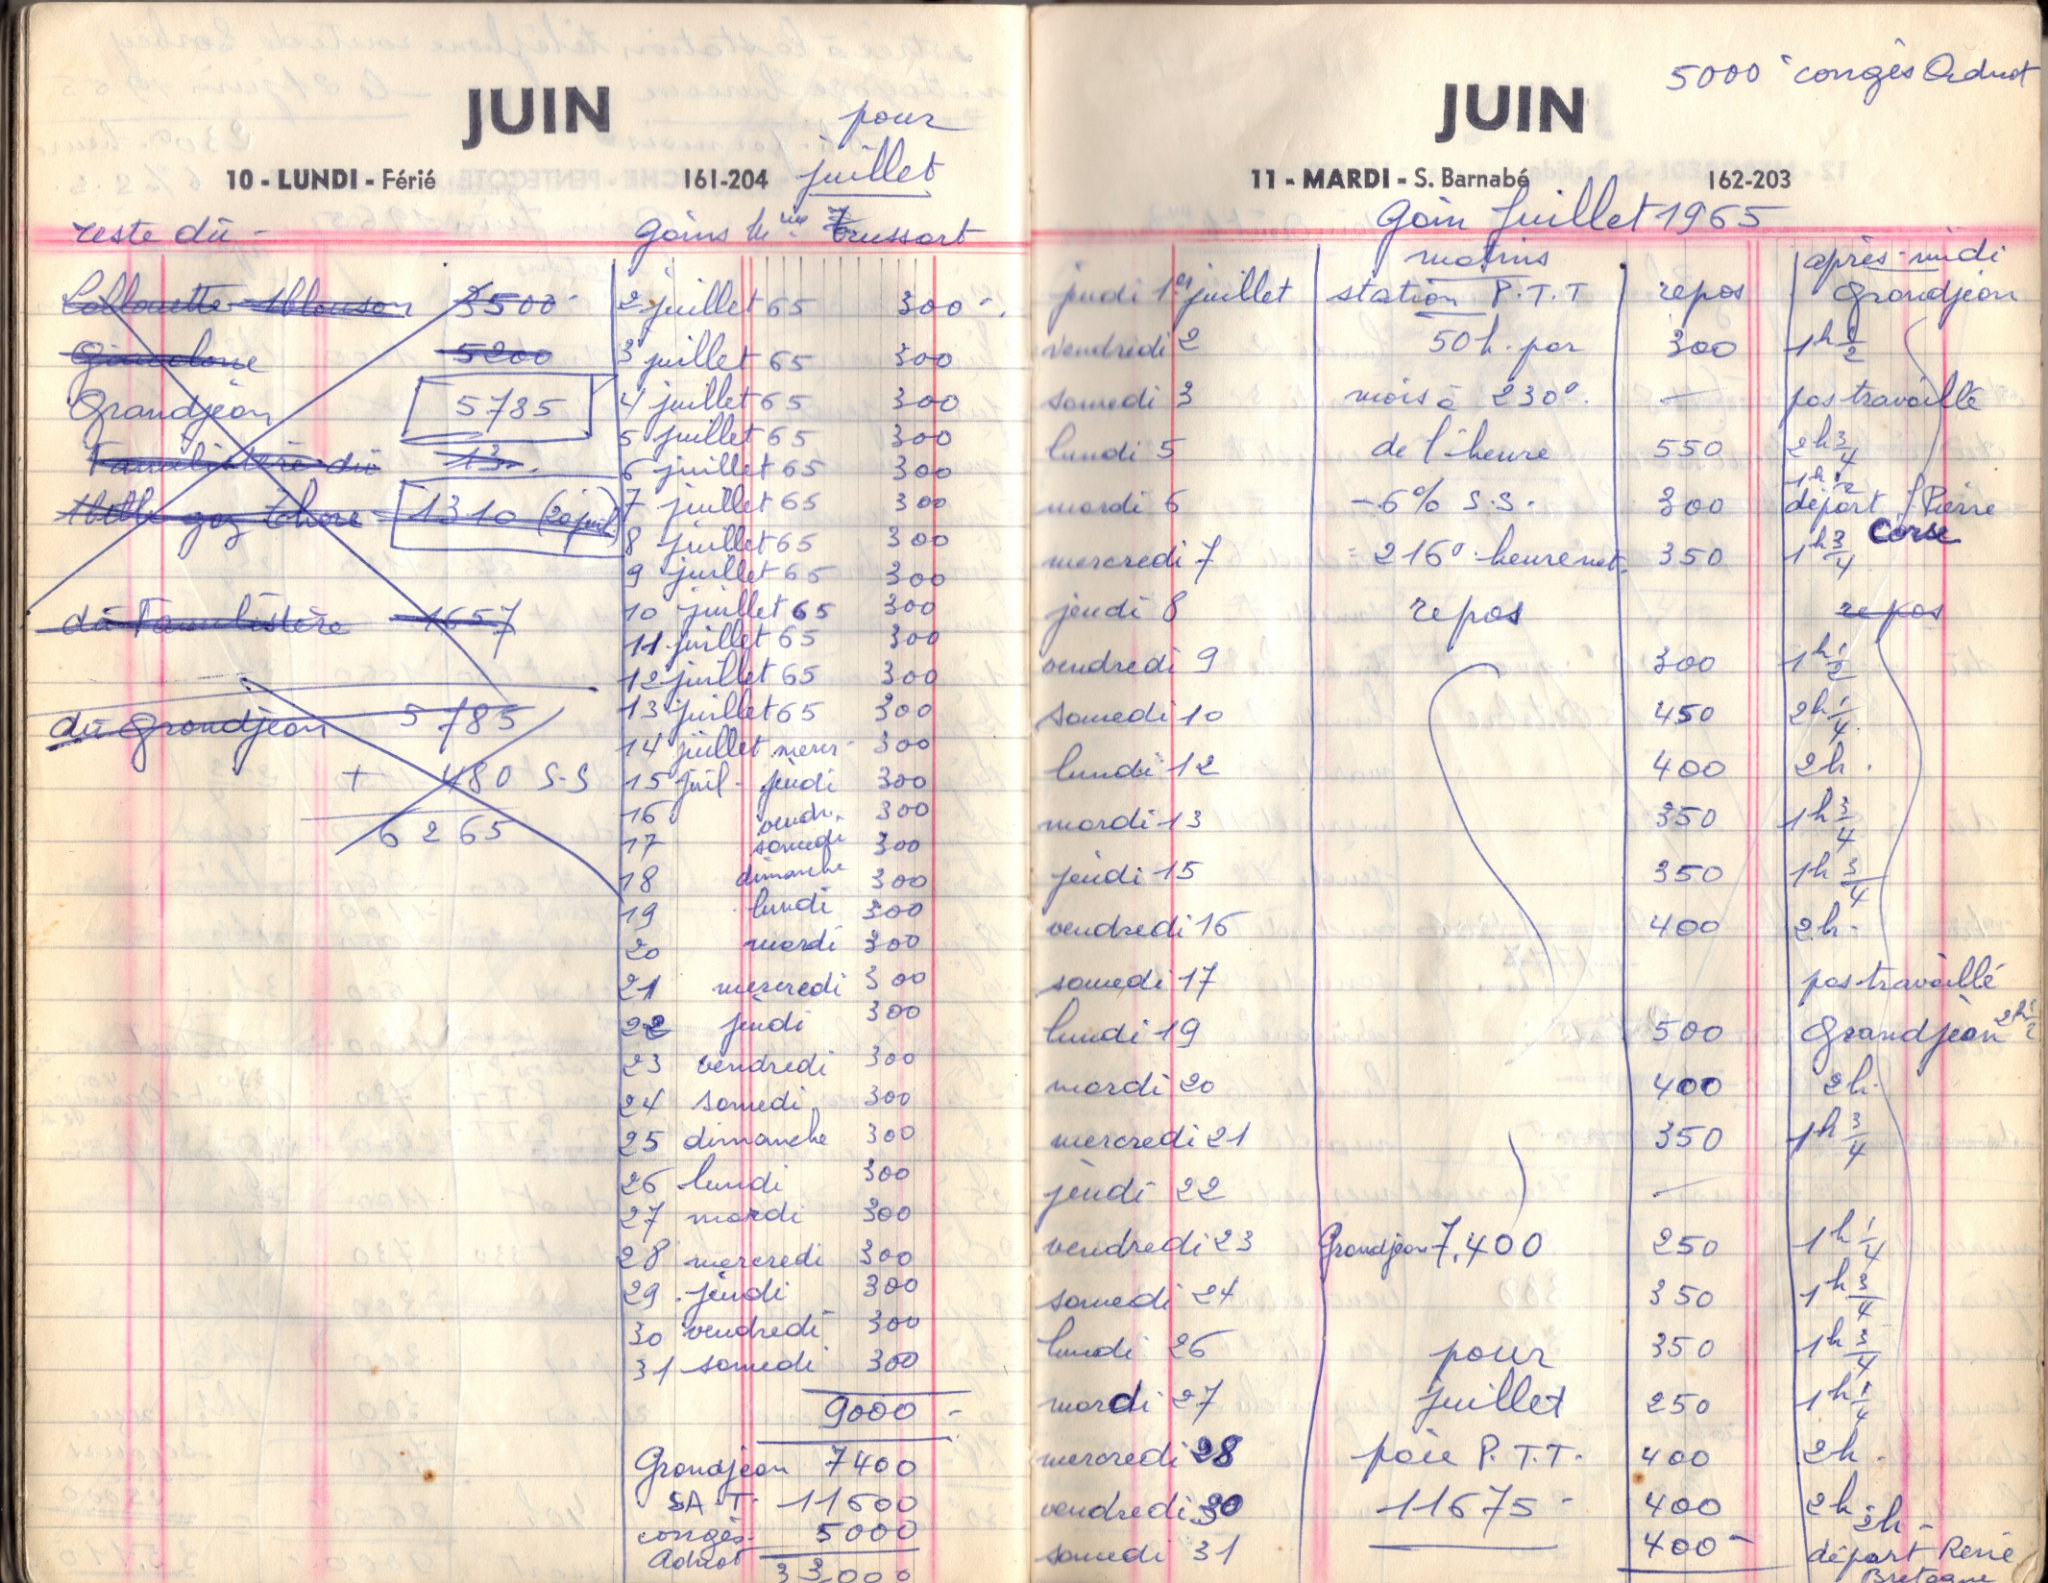 JUIN
pour
10 - LUNDI - Férié 161-204 juillet
reste dû - gains Mme Trussort
3500 -
5200
Grandjeon 5785
Familistère dû 13
1310 (20 juil)
dû Familistère 1657
dû Grandjeon 5785
+ 480 S-S
6265
2 juillet 65 300 -
3 juillet 65 300
4 juillet 65 300
5 juillet 65 300
6 juillet 65 300
7 juillet 65 300
8 juillet 65 300
9 juillet 65 300
10 juillet 65 300
11 juillet 65 300
12 juillet 65 300
13 juillet 65 300
14 juillet mercr - 300
15 juil - jeudi 300
16 vendr. 300
17 samedi 300
18 dimanche 300
19 lundi 300
20 mardi 300
21 mercredi 300
22 jeudi 300
23 vendredi 300
24 samedi 300
25 dimanche 300
26 lundi 300
27 mardi 300
28 mercredi 300
29 jeudi 300
30 vendredi 300
31 samedi 300
9000 -
Grandjeon 7400
SA.T. 11600
congés 5000
Adnot
33,000
5000 congés Adnot
JUIN
11 - MARDI - S. Barnabé 162-203
Gain Juillet 1965
matins après-midi
jeudi 1er juillet station P.T.T repos Grandjeon
vendredi 2 50h. par 300 1h 1/2
samedi 3 mois à 230°. — pas travaillé
lundi 5 de l'heure 550 2h 3/4
1h 1/2
mardi 6 - 6% S.S. 300 départ Pierre
Corse
mercredi 7 = 216° heure net. 350 1h 3/4
jeudi 8 repos repos
vendredi 9 300 1h 1/2
samedi 10 450 2h 1/4
lundi 12 400 2h.
mardi 13 350 1h 3/4
jeudi 15 350 1h 3/4
vendredi 16 400 2h -
samedi 17 pas travaillé
lundi 19 500 Grandjeon 2h 1/2
mardi 20 400 2h.
mercredi 21 350 1h 3/4
jeudi 22 —
vendredi 23 Grandjeon 7.400 250 1h 1/4
samedi 24 350 1h 3/4
lundi 26 pour 350 1h 3/4
mardi 27 juillet 250 1h 1/4
mercredi 28 paie P.T.T. 400 2h.
vendredi 30 11675 - 400 2h
2h -
samedi 31 400 - départ René
Bretagne